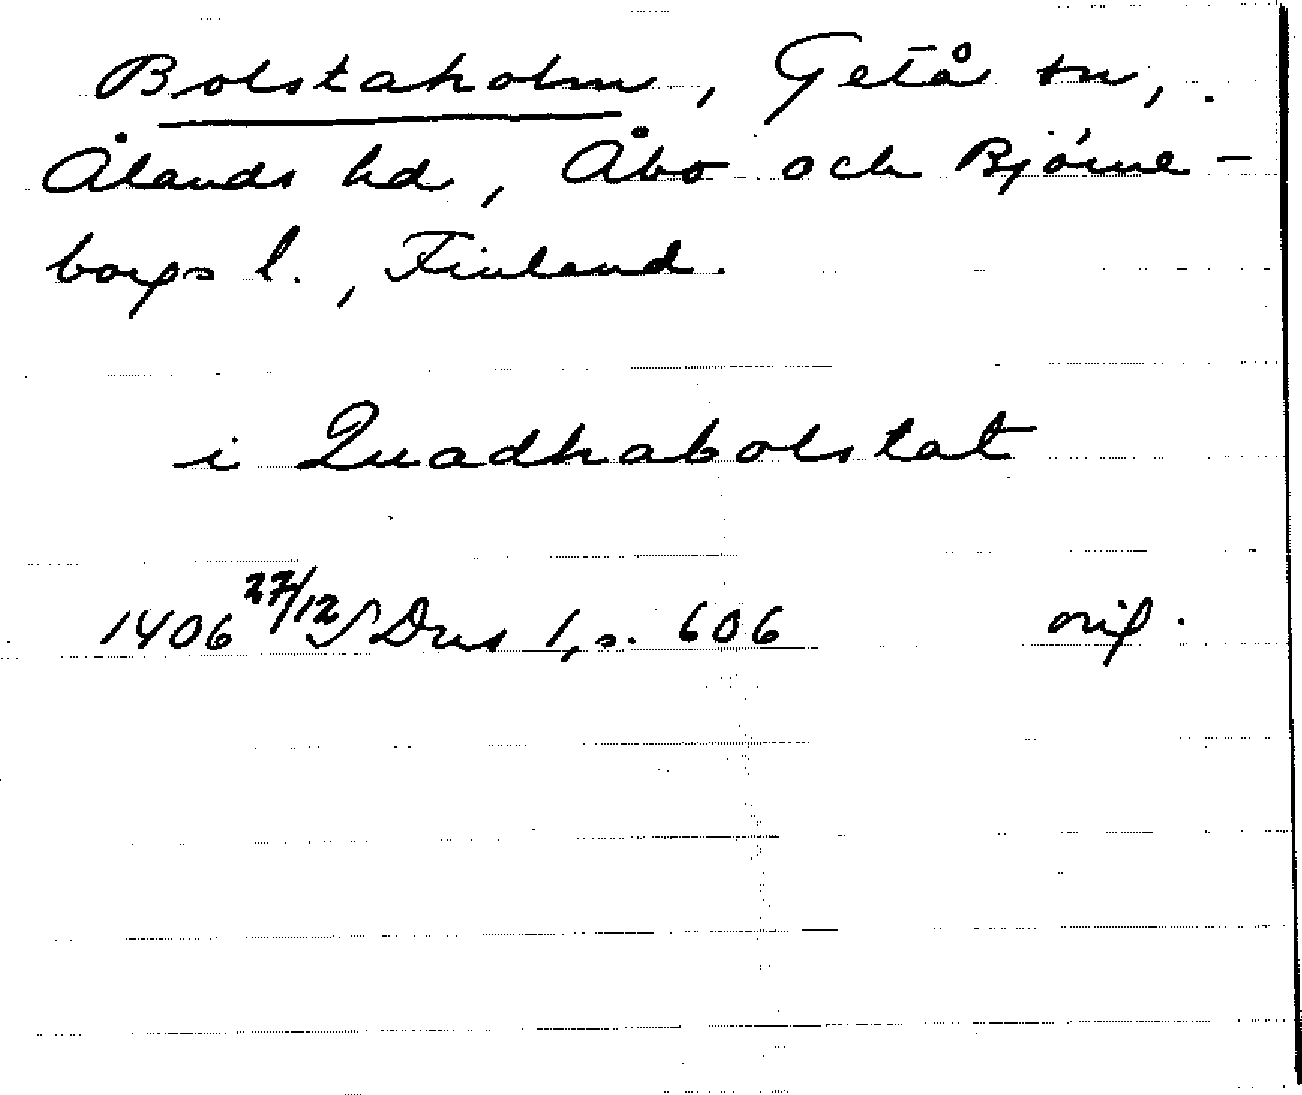 Bolstaholm, Getå sn,
Ålands hd, Åbo och Björne-
borgs l., Finland.
i Quadhabolstat
1406 27/12 SDns 1, s. 606 orig.